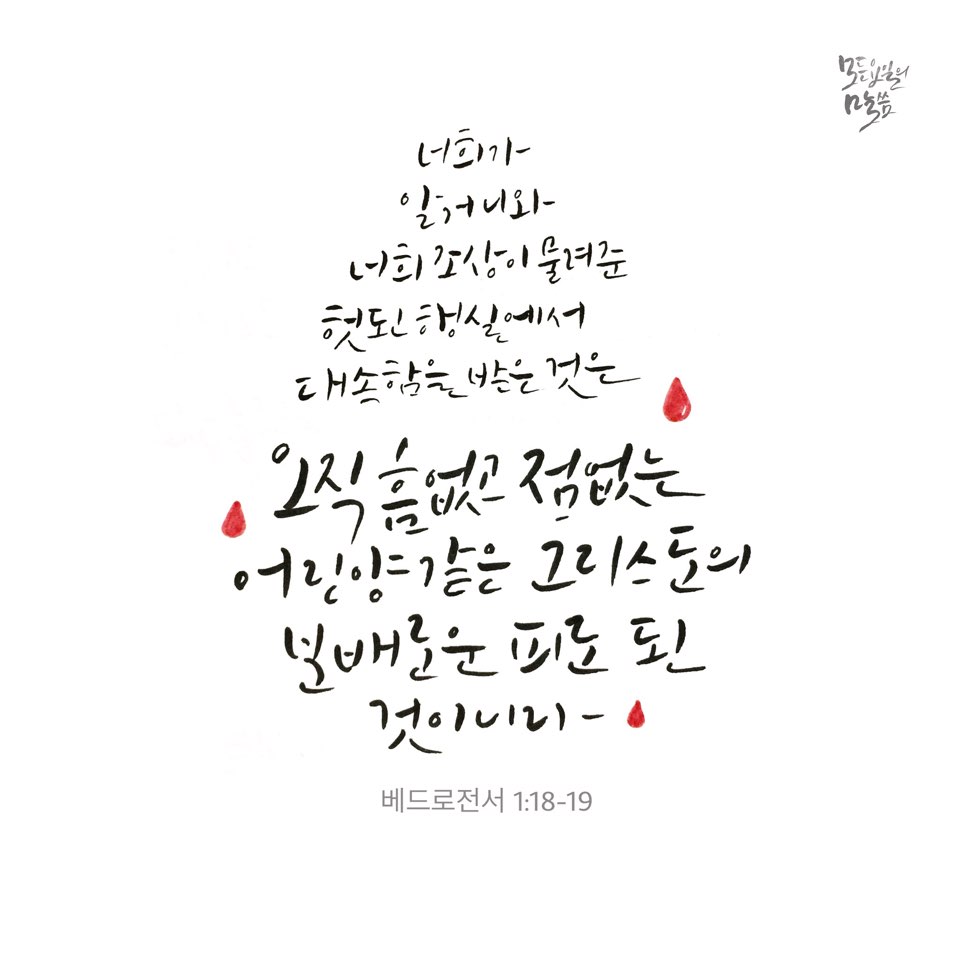 모든입일의
말씀
너희가
알거니와
너희 조상이 물려준
헛된 행실에서
대속함을 받은 것은
오직 흠없고 점없는
어린양 같은 그리스도의
보배로운 피로 된
것이니라
베드로전서 1:18-19